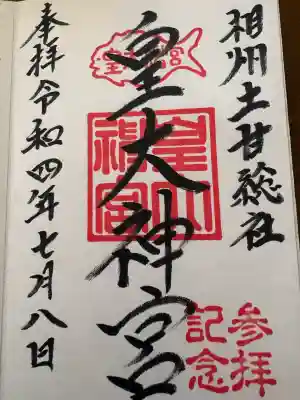 相州土甘総社
皇大神宮
参拝
記念
奉拝令和四年七月八日